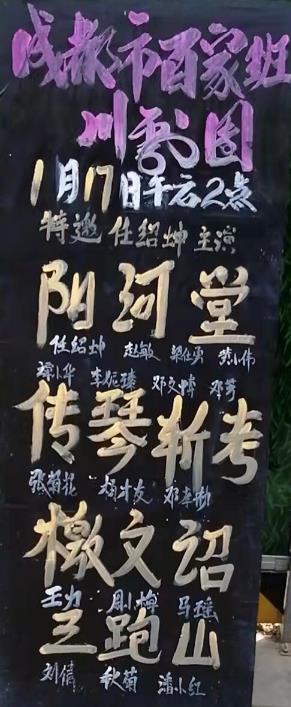 成都市百家班
川剧团
1月17日午后2点
特邀任绍坤主演
阴河堂
任绍坤 赵敏 梁仕勇 黄小伟
李妮臻 邓文博 邓芳
传琴斩考
张菊花 杨才友
檄文诏
王力 刚梅 马瑶
三跑山
刘倩 秋菊 潘小红